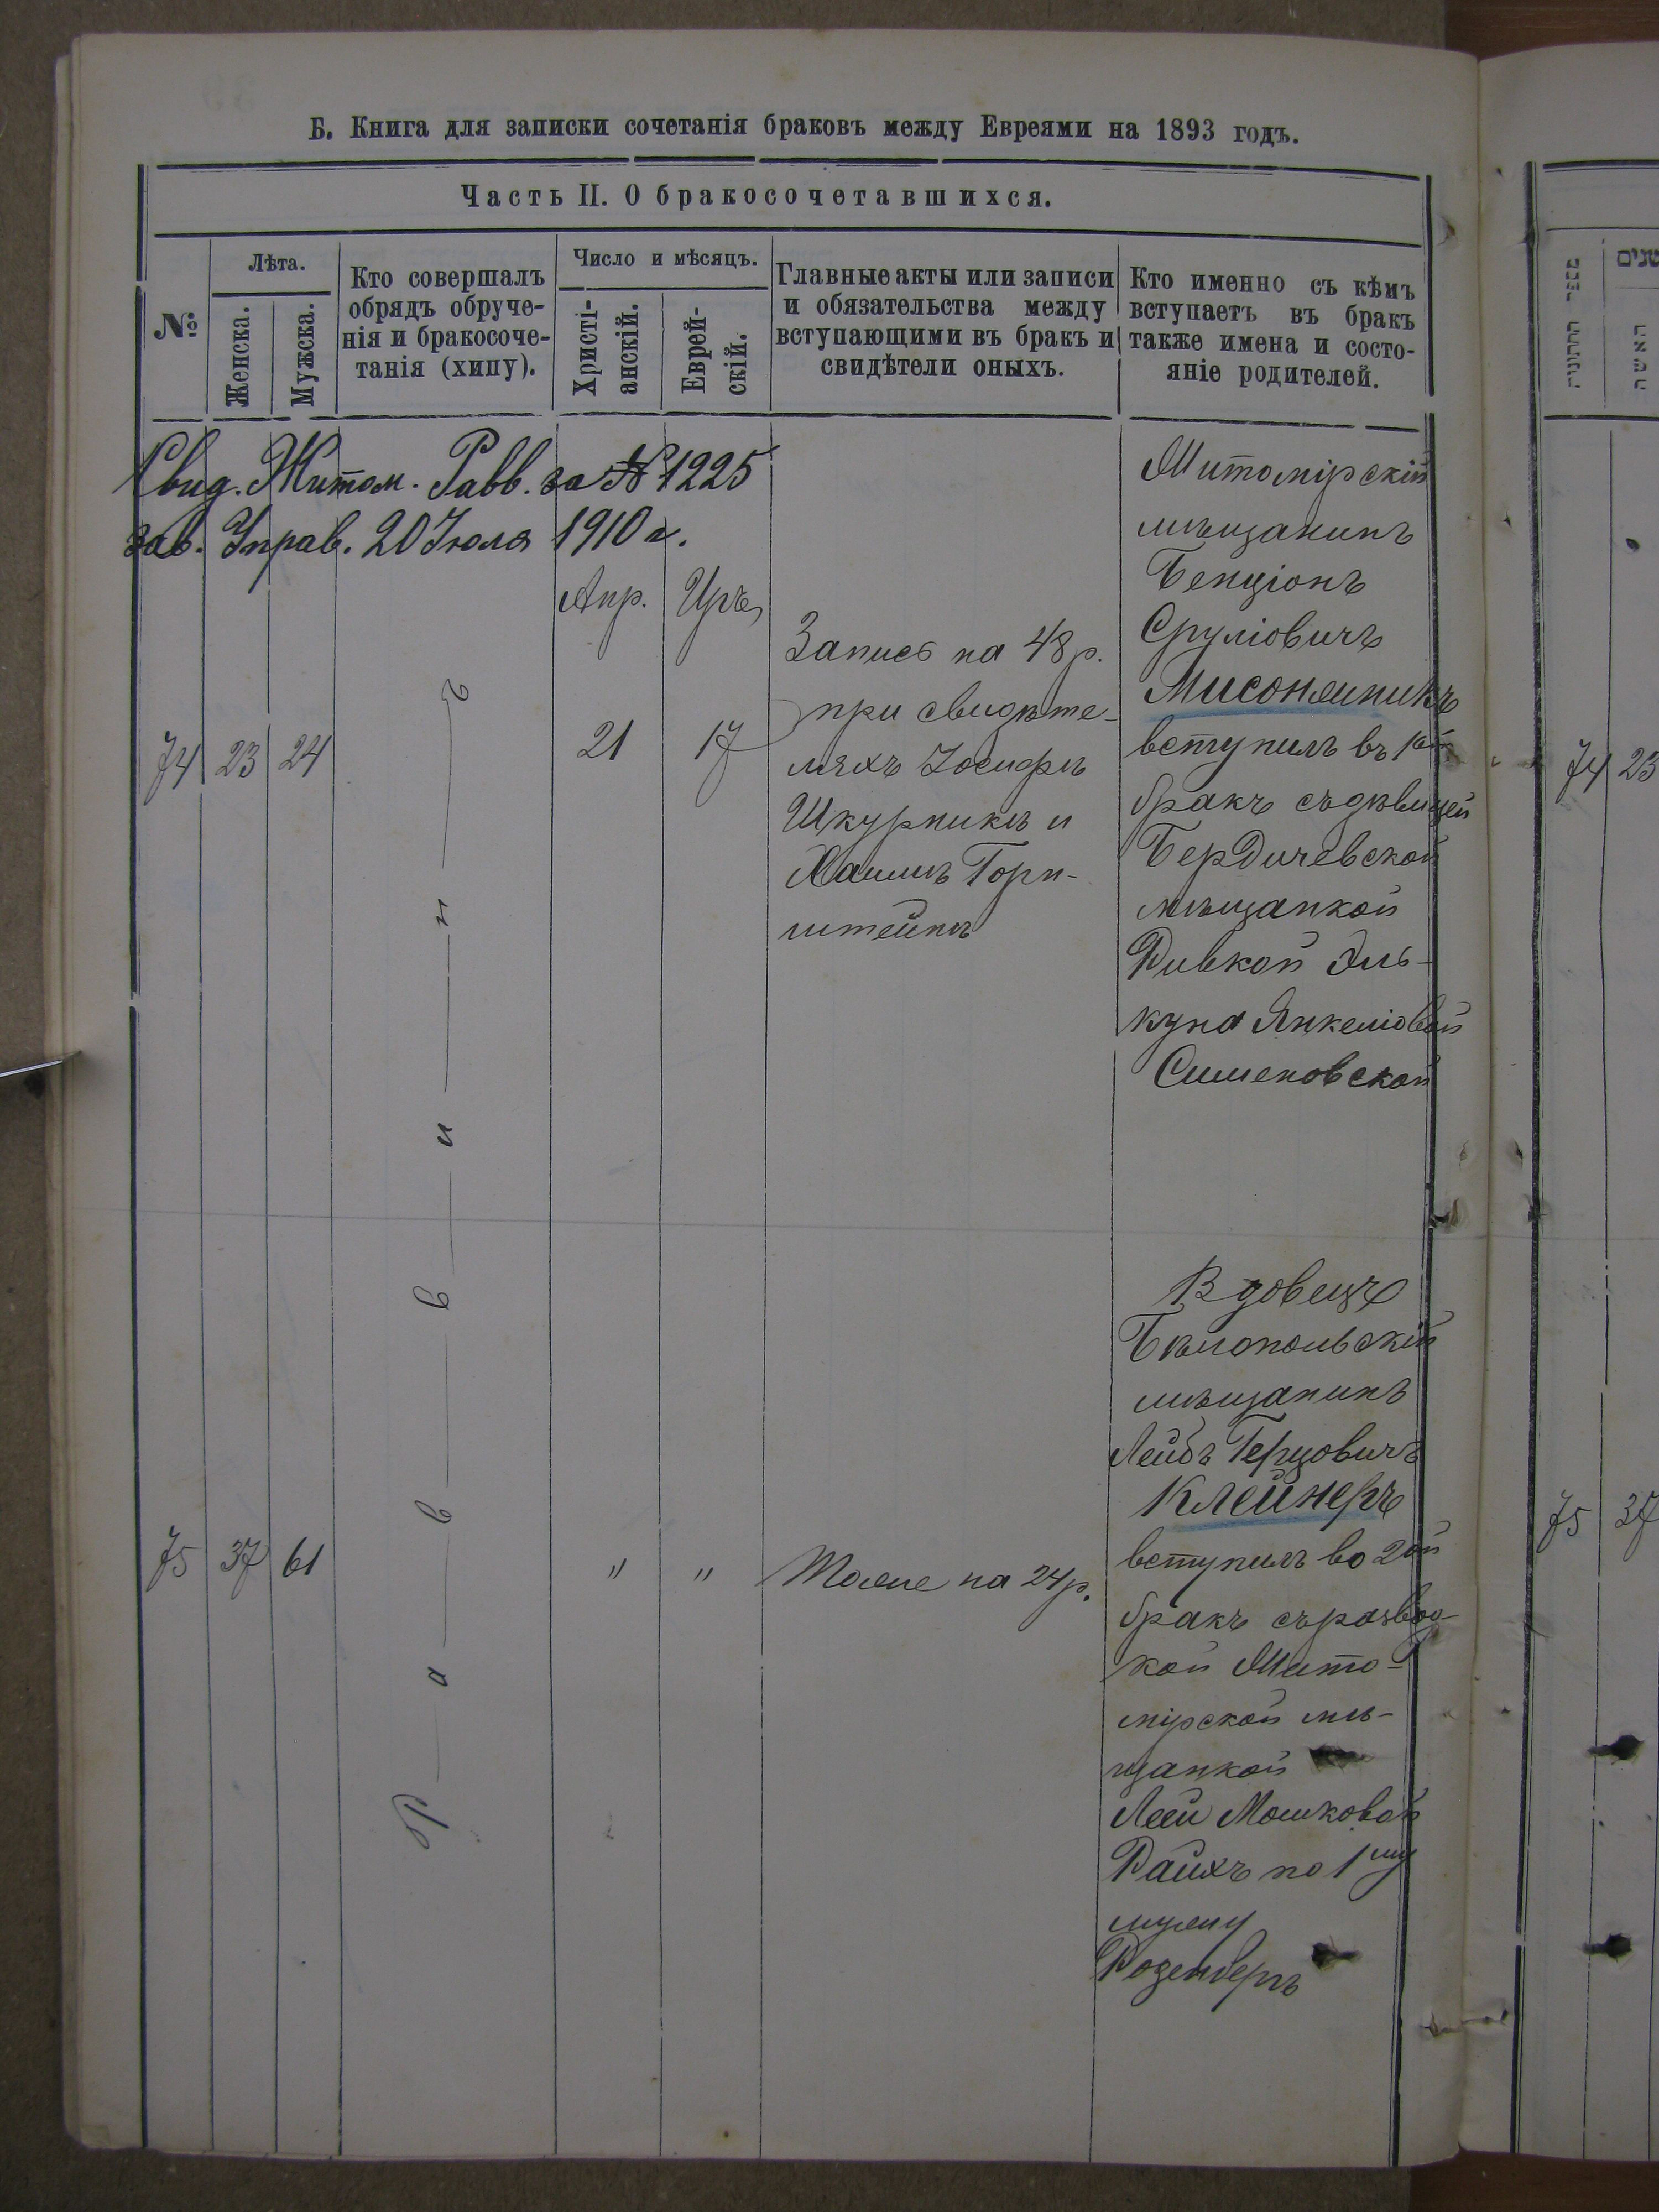 Б. Книга для записки сочетанія браковъ между Евреями на 1893 годъ.
Часть II. О бракосочетавшихся.
№
Лѣта.
Женска.
Мужска.
Кто совершалъ
обрядъ обруче-
нія и бракосоче-
танія (хипу).
Число и мѣсяцъ.
Христі-
анскій.
Еврей-
скій.
Главные акты или записи
и обязательства между
вступающими въ бракъ и
свидѣтели оныхъ.
Кто именно съ кѣмъ
вступаетъ въ бракъ
также имена и состо-
яніе родителей.
Свид. Житом. Равв. за № 1225
зав. Управ. 20 Іюля 1910 г.
Апр.
74 23 24
Раввинъ
21 17
Запись на 48 р.
при свидѣте-
ляхъ Іосифъ
Шкурникъ и
Хаимъ Горн-
штейнъ
Житомірскій
мѣщанинъ
Бенціонъ
Сруліовичъ
Мисонжникъ
вступилъ въ 1ый
бракъ съ дѣвицей
Бердичевской
мѣщанкой
Ривкой Эль-
куна Янкеліовой
Сименовской
75 37 61
" "
Тоже на 24 р.
Вдовецъ
Бѣлопольскій
мѣщанинъ
Лейбъ Герцовичъ
Клейнеръ
вступилъ во 2ой
бракъ съ развод-
кой Жито-
мірской мѣ-
щанкой
Леей Мошковой
Райхъ по 1му
мужу
Розенбергъ
מספר החתונה
שנים
האשה
74 23
75 37